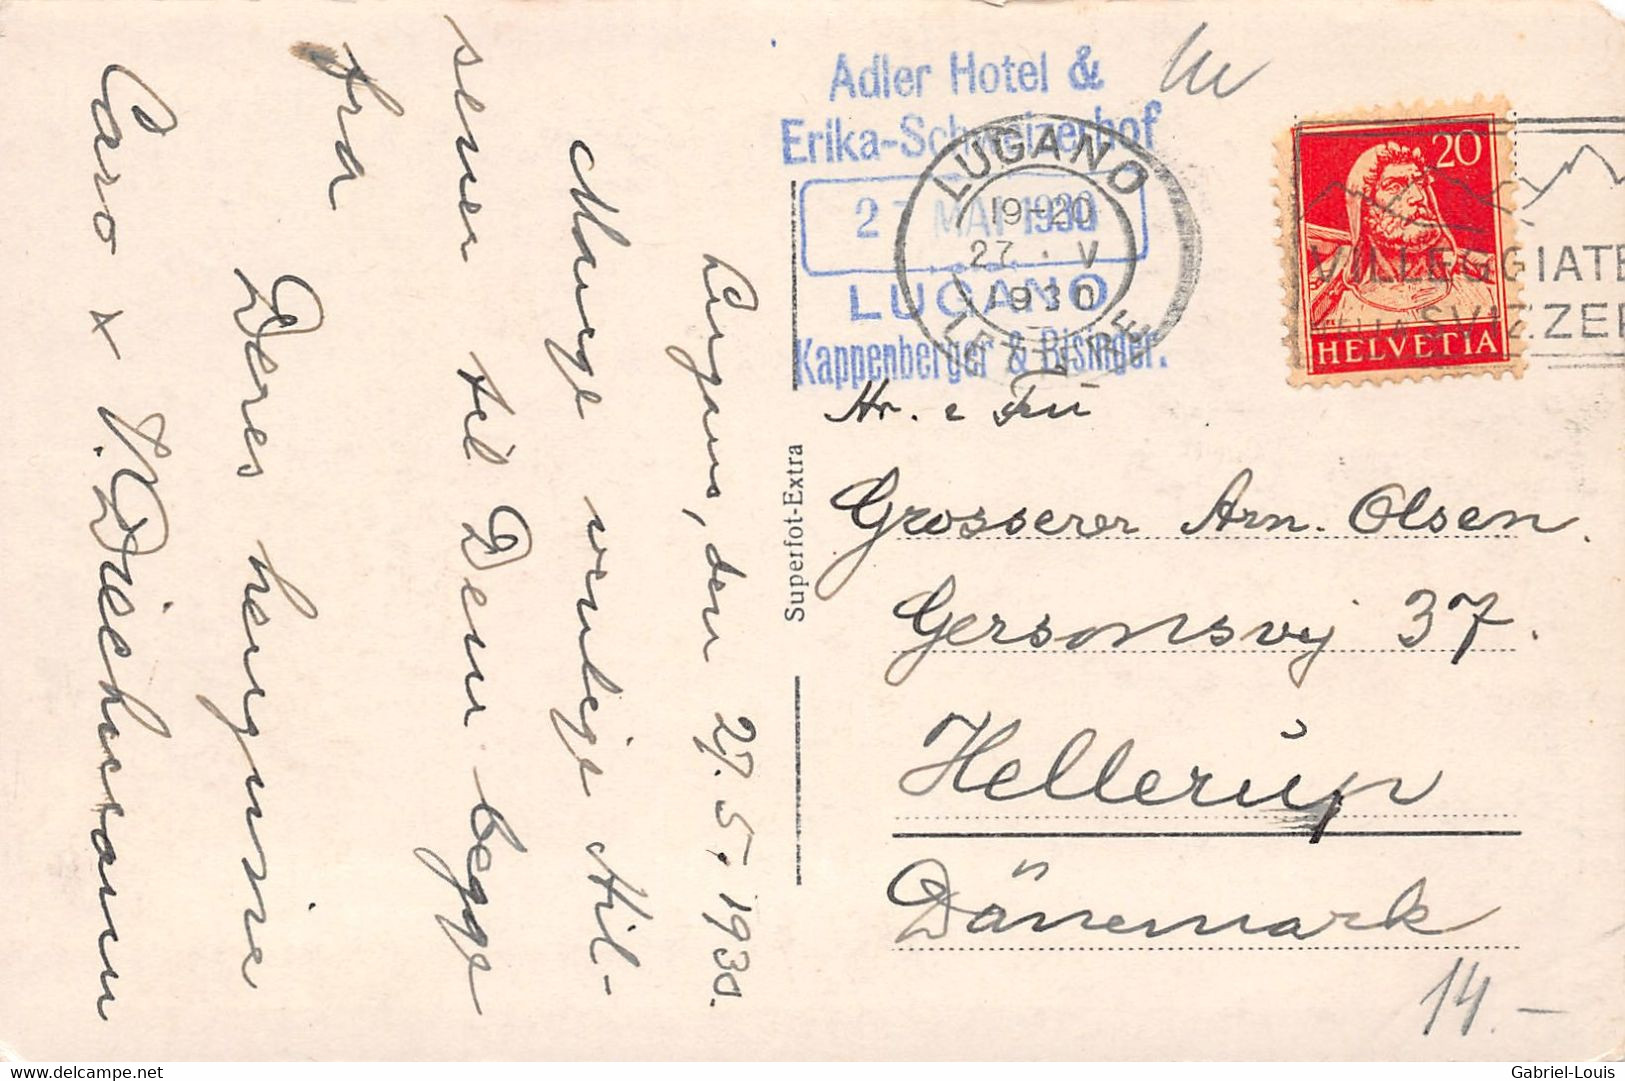 Adler Hotel &
Erika-Schweizerhof
27 MAI 1930
LUGANO
Kappenberger & Bisinger.
LUGANO
19-20
27 . V
1930
LETTERE
20
HELVETIA
VILLEGGIATE
SVIZZER
Superfot-Extra
Lugano, den 27.5.1930.
Mange venlige Hil-
sener til Dem begge
fra
Deres hengivne
Caro & V. Driechmann
Hr. & Fru
Grosserer Arn. Olsen.
Gersonsvej 37.
Hellerup
Dänemark
14.-
delcampe.net
Gabriel-Louis